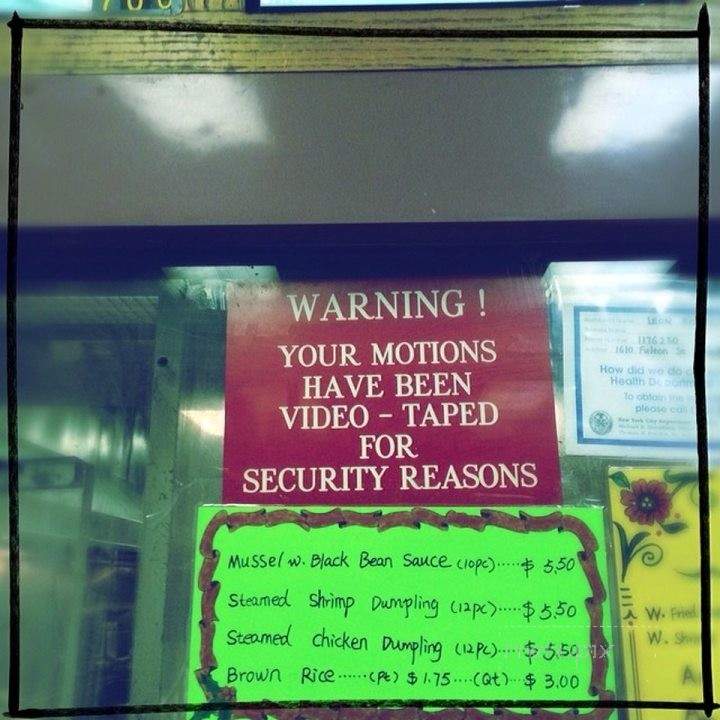 700
WARNING !
YOUR MOTIONS
HAVE BEEN
VIDEO - TAPED
FOR
SECURITY REASONS
1176250
1610 Fulton
How did we do
Health
To obtain
please call
New York City
Mussel w. Black Bean Sauce (10pc)·····$ 5.50
Steamed Shrimp Dumpling (12pc)····$5.50
Steamed chicken Dumpling (12pc)····$5.50
Brown Rice······(Pt) $1.75····(Qt)··$ 3.00
W. Fried
W.